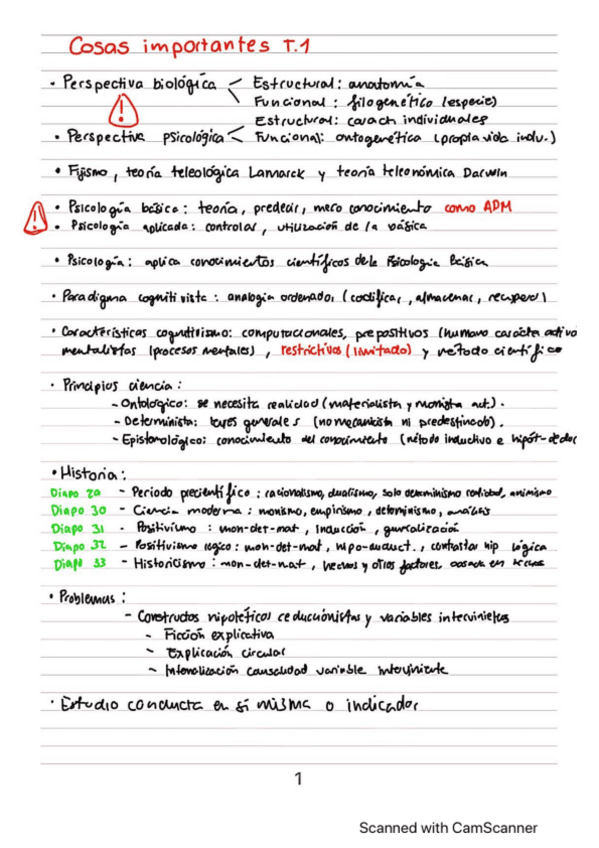 Cosas importantes T.1
· Perspectiva biológica < Estructural: anatomía
Funcional: filogenético (especie)
Estructural: caract individuales
• Perspectiva psicológica < Funcional: ontogenética (propia vida indiv.)
• Fijismo, teoría teleológica Lamarck y teoría teleonómica Darwin
• Psicología básica: teoría, predecir, mero conocimiento como ADM
• Psicología aplicada: controlar, utilización de la básica
• Psicología: aplica conocimientos científicos de la Psicología Básica
• Paradigma cognitivista: analogía ordenador (codificar, almacenar, recuperar)
• Características cognitivismo: computacionales, prepositivos (humano carácter activo
mentalistas (procesos mentales), restrictivos (limitado) y método científico
· Principios ciencia:
- Ontológico: se necesita realidad (materialista y monista act.).
- Determinista: leyes generales (no mecanicista ni predestinado).
- Epistemológico: conocimiento del conocimiento (método inductivo e hipót-deduc
• Historia:
Diapo 29 - Periodo precientífico: racionalismo, dualismo, solo determinismo realidad, animismo
Diapo 30 - Ciencia moderna: monismo, empirismo, determinismo, análisis
Diapo 31 - Positivismo: mon-det-mat, inducción, generalización
Diapo 32 - Positivismo logico: mon-det-mat, hipo-deduct., contrastar hip lógica
Diapo 33 - Historicismo: mon-det-mat, hechos y otros factores,
• Problemas:
- Constructos hipotéticos reduccionistas y variables intervinientes
- Ficción explicativa
- Explicación circular
- Internalización causalidad variable interviniente
· Estudio conducta en sí misma o indicador
1
Scanned with CamScanner